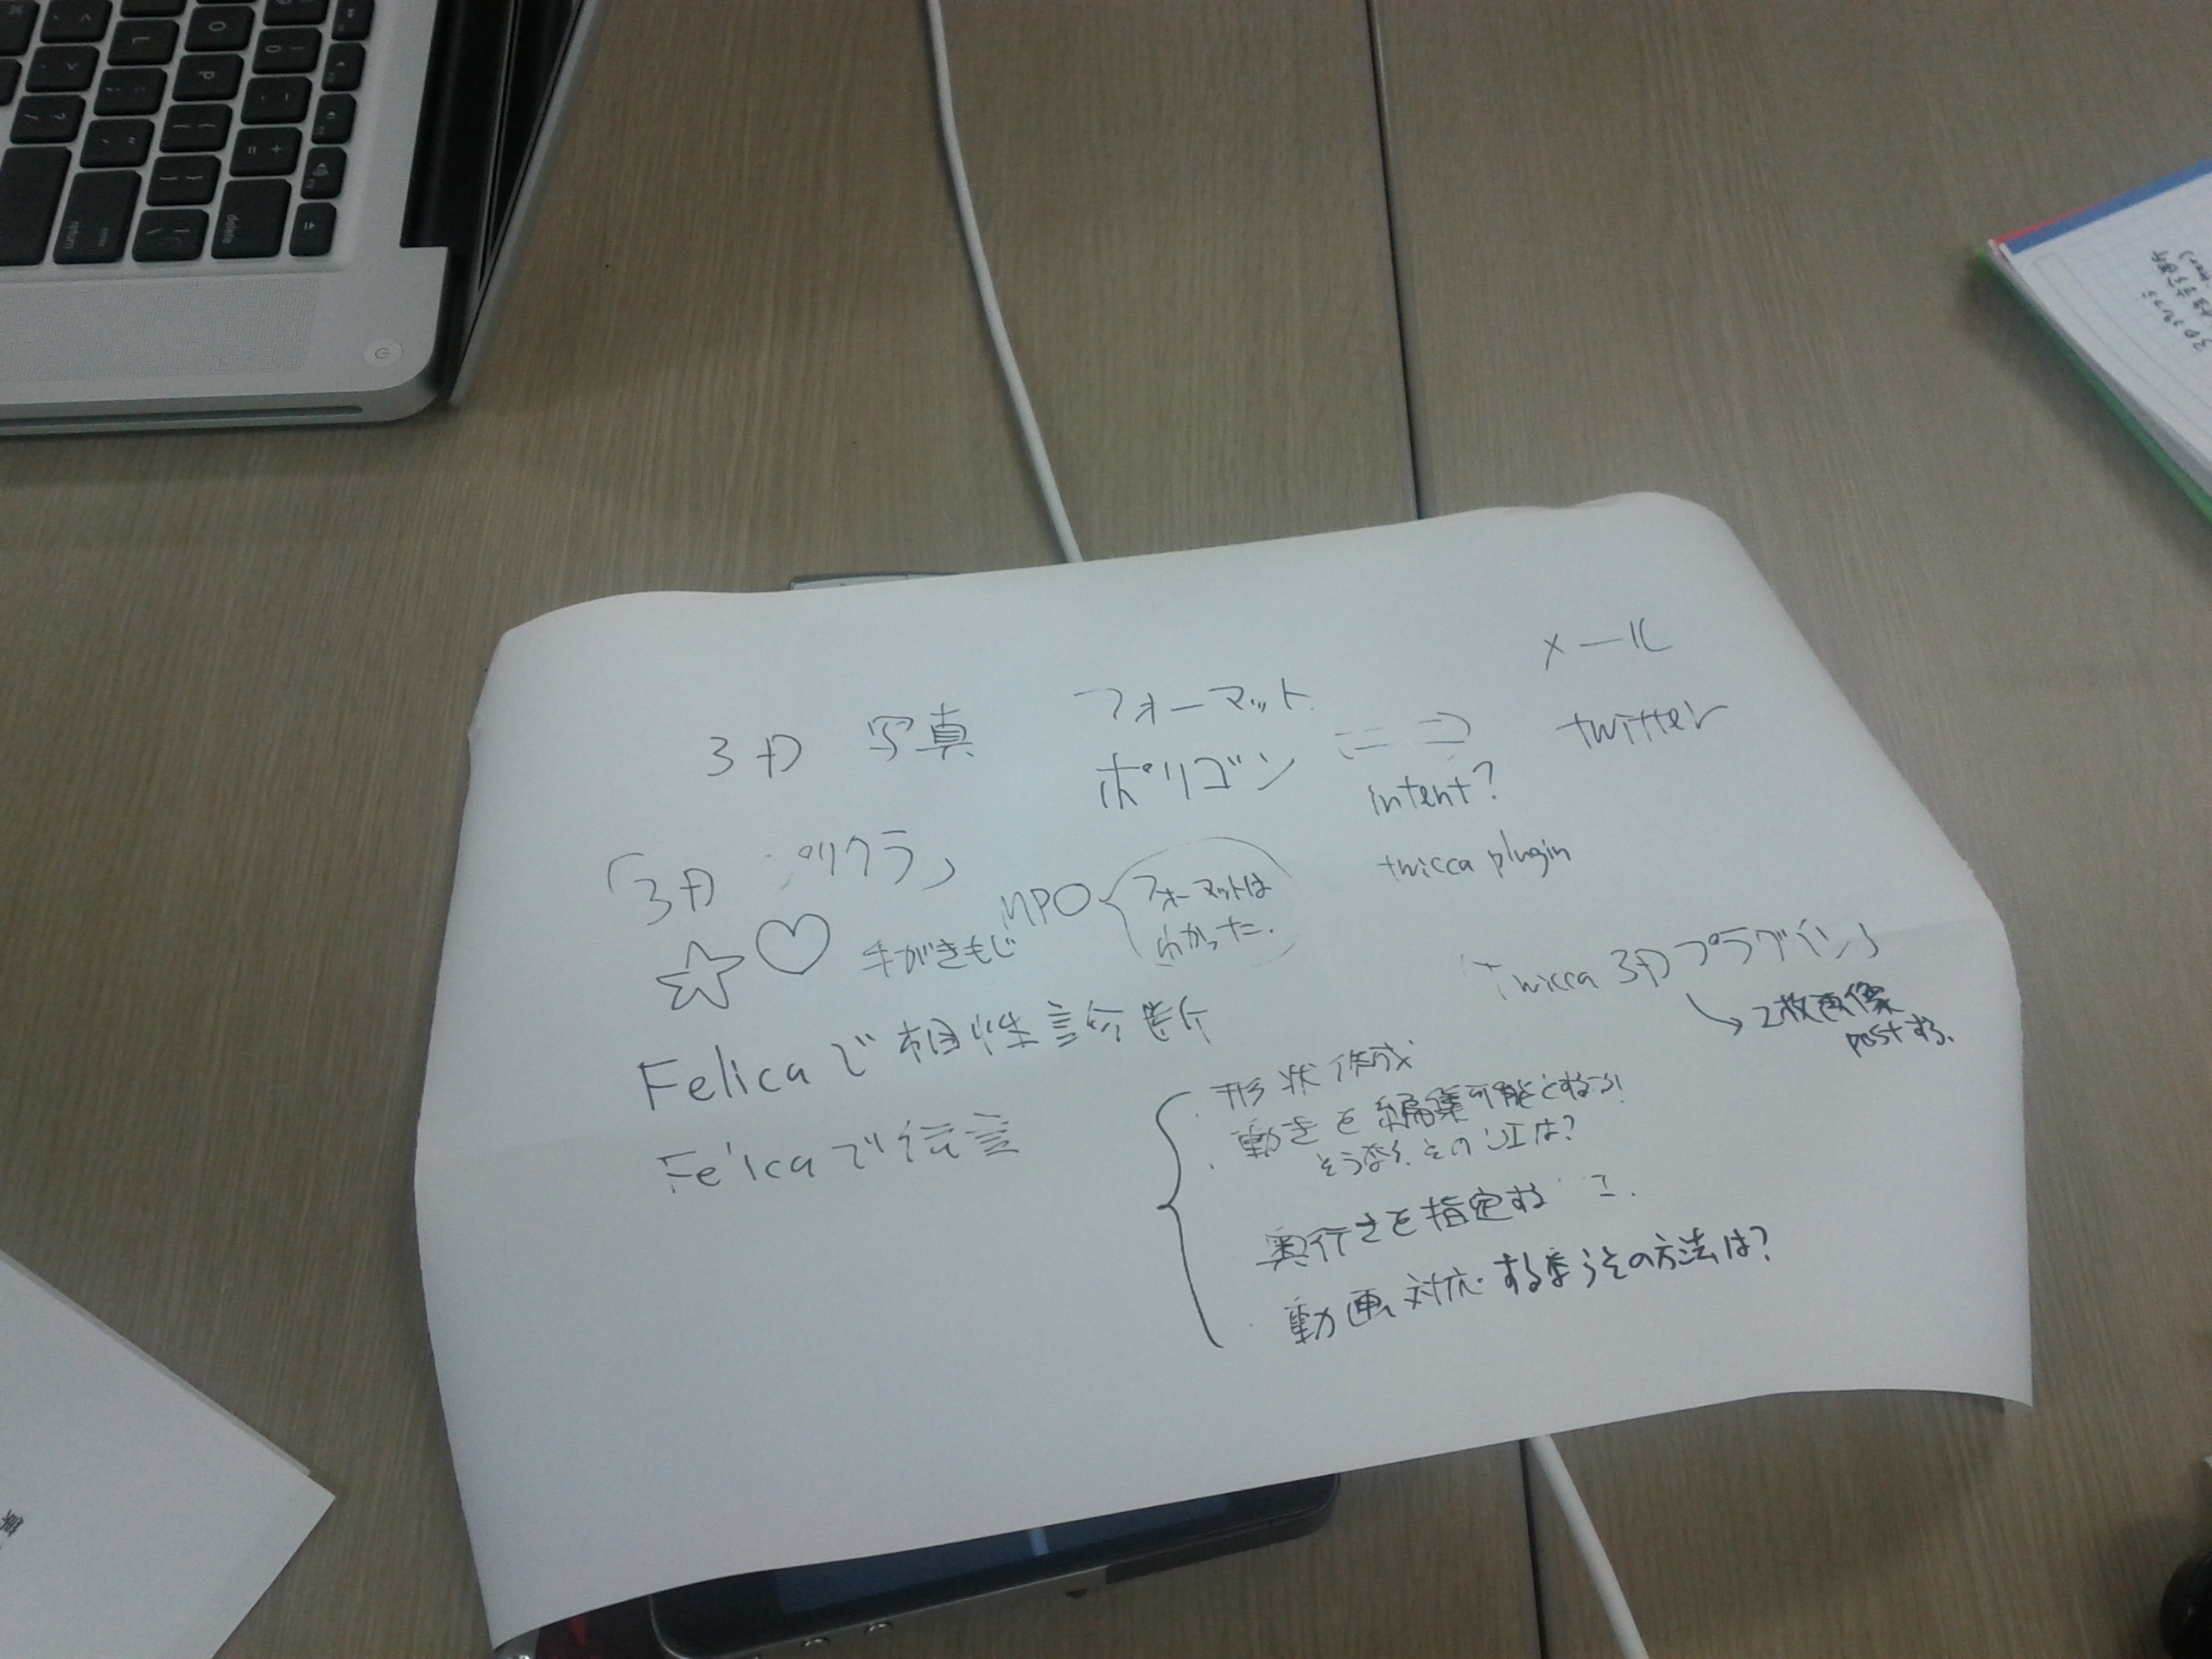 メール
3D 写真
フォーマット
⇒
twitter
ポリゴン
intent?
「3D プリクラ」
twicca plugin
MPO
フォーマットは
わかった.
手がきもじ
twicca 3Dプラグイン」
→2枚画像
postする.
Felicaで相性診断
Felicaで伝言
形状作成
動きを編集可能とする
そのUIは?
奥行きを指定する
動画対応する
その方法は?
delete
return
enter